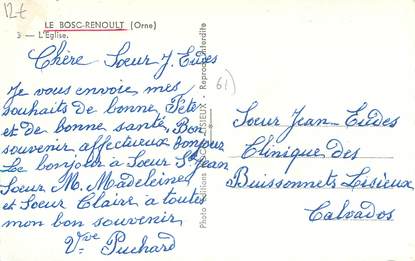 12t
LE BOSC-RENOULT (Orne)
3 - L'Eglise.
Chère Soeur J. Eudes
Je vous envoie mes
souhaits de bonne Fête
et de bonne santé, Bon
souvenir affectueux bonjour
Le bonjour à Soeur St Jean
Soeur M. Madeleine
et Soeur Claire à toute
mon bon souvenir
Vve Puchard
Photo Editions
LISIEUX - Reprod. Interdite
61)
Soeur Jean Eudes
Clinique des
Buissonnets Lisieux
Calvados